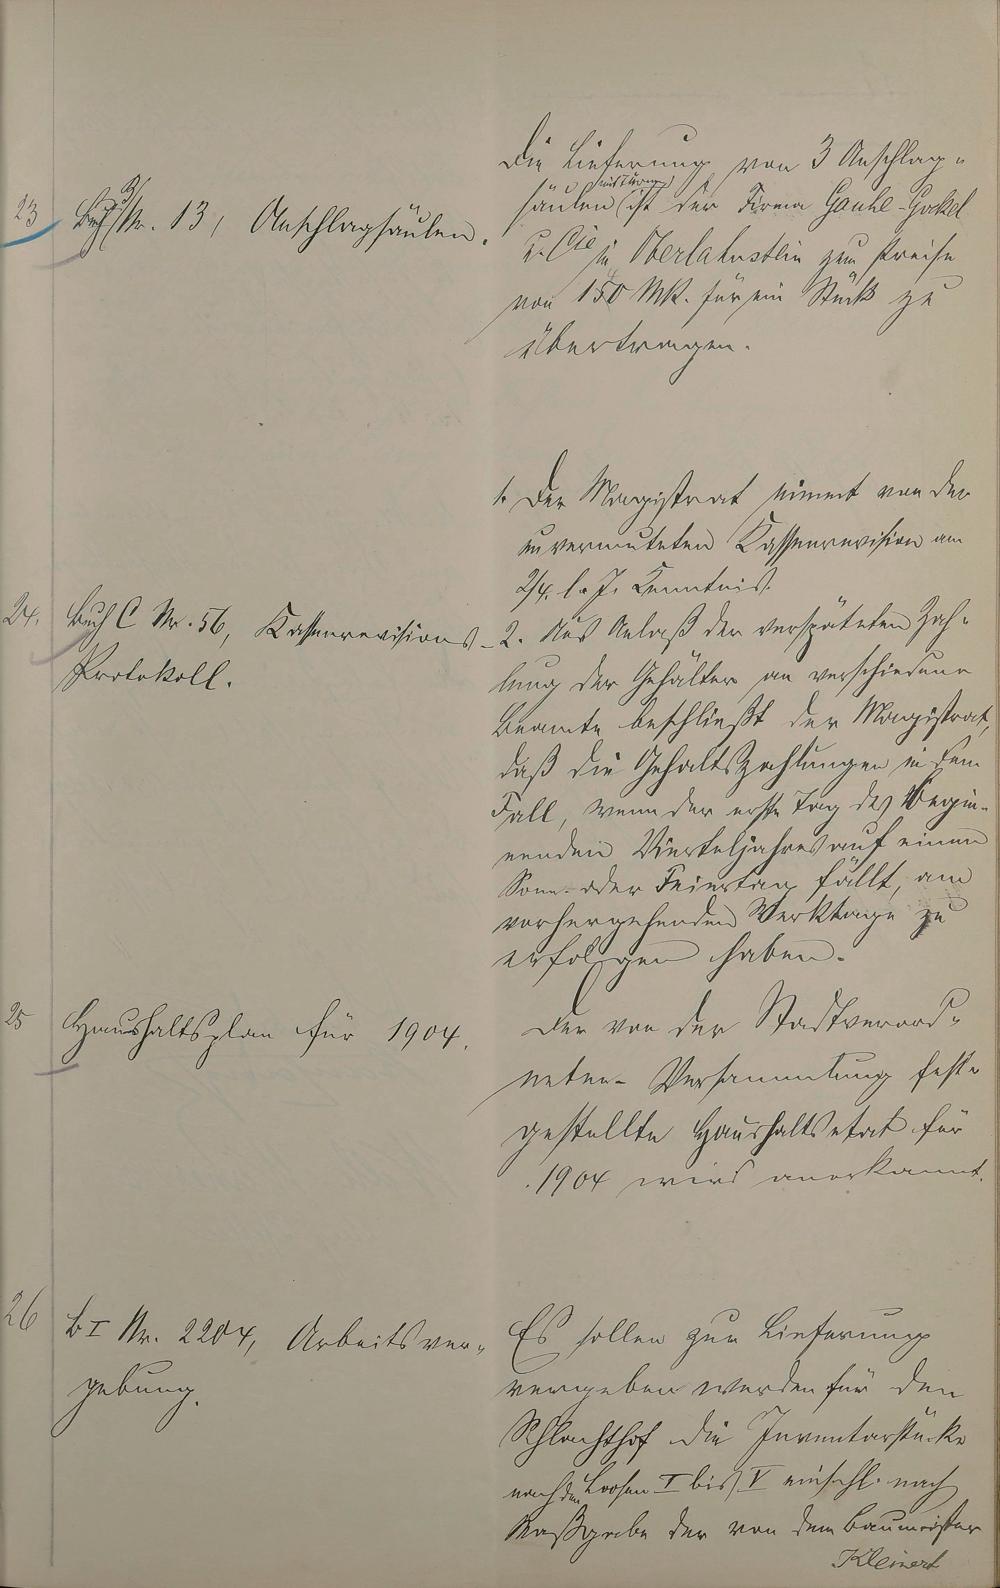 23
Buch B Nr. 13, Anschlagsäulen.
Die Lieferung von 3 Anschlag-
säulen (mit Türen) ist der Firma Gauhe-Gockel
u. Cie in Oberlahnstein zum Preise
von 150 Mk. für ein Stück zu
übertragen.
24.
Buch C Nr. 56, Kassenrevisions-
Protokoll.
1. Der Magistrat nimmt von der
unvermuteten Kassenrevision am
2/4. l. J. Kenntnis.
2. Aus Anlaß der verspäteten Zah-
lung der Gehälter an verschiedene
Beamte beschließt der Magistrat,
daß die Gehaltszahlungen in dem
Fall, wenn der erste Tag des begin-
nenden Vierteljahres auf einen
Sonn- oder Feiertag fällt, am
vorhergehenden Werktage zu
erfolgen haben.
25
Haushaltsplan für 1904.
Der von der Stadtverord-
neten-Versammlung fest-
gestellte Haushaltsetat für
1904 wird anerkannt.
26
B I Nr. 2204, Arbeitsver-
gebung.
Es sollen zur Lieferung
vergeben werden für den
Schlachthof die Inventarstücke
nach den Loosen I bis V einschl. nach
Maßgabe der von dem Baumeister
Kleinert